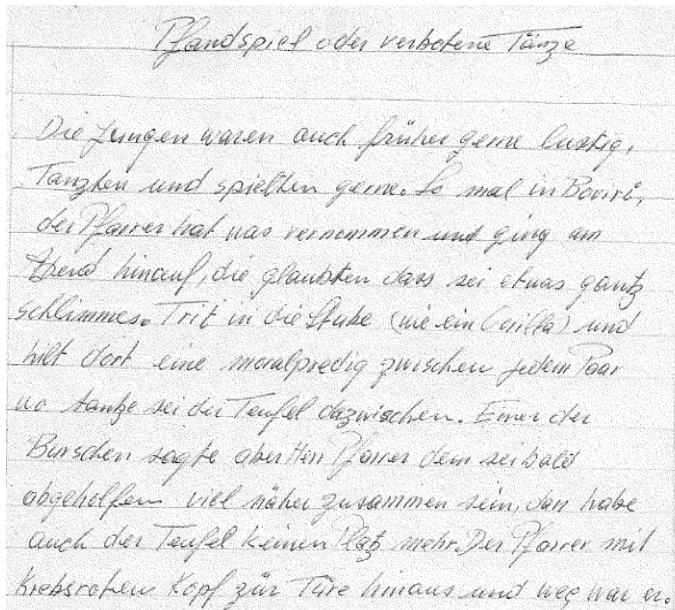 Pfandspiel oder verbotene Tänze
Die Jungen waren auch früher gerne lustig,
Tanzten und spielten gerne. So mal in Boviri,
der Pfarrer hat was vernommen und ging am
Abend hinauf, die glaubten dass sei etwas gantz
schlimmes. Trit in die Stube (wie ein Gorilla) und
hilt dort eine moralpredig zwischen jedem Paar
wo tantze sei der Teufel dazwischen. Einer der
Burschen sagte aber Herr Pfarrer dem sei bald
abgeholfen viel näher zusammen sein, dan habe
auch der Teufel keinen Platz mehr. Der Pfarrer mit
Krebsroten Kopf zür Türe hinaus und weg war er.